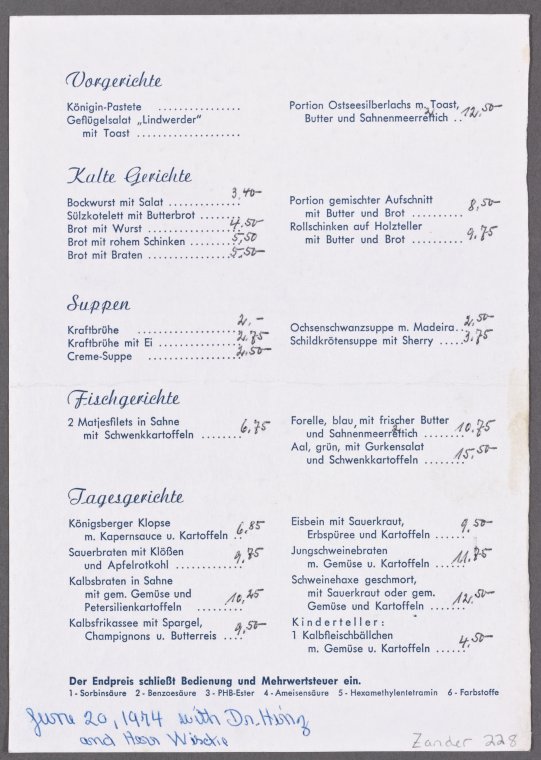 Vorgerichte
Königin-Pastete ................
Geflügelsalat „Lindwerder"
mit Toast ....................
Portion Ostseesilberlachs m. Toast,
Butter und Sahnenmeerrettich .. 12,50
Kalte Gerichte
Bockwurst mit Salat .............. 3,40
Sülzkotelett mit Butterbrot .......
Brot mit Wurst .................. 4,50
Brot mit rohem Schinken ......... 5,50
Brot mit Braten ................. 5,50
Portion gemischter Aufschnitt
mit Butter und Brot .......... 8,50
Rollschinken auf Holzteller
mit Butter und Brot .......... 9,75
Suppen
Kraftbrühe .................... 2,-
Kraftbrühe mit Ei ................ 2,75
Creme-Suppe .................. 2,50
Ochsenschwanzsuppe m. Madeira.. 2,50
Schildkrötensuppe mit Sherry ..... 3,75
Fischgerichte
2 Matjesfilets in Sahne
mit Schwenkkartoffeln ........ 6,75
Forelle, blau, mit frischer Butter
und Sahnenmeerrettich ........ 10,75
Aal, grün, mit Gurkensalat
und Schwenkkartoffeln ........ 15,50
Tagesgerichte
Königsberger Klopse
m. Kapernsauce u. Kartoffeln .. 6,85
Sauerbraten mit Klößen
und Apfelrotkohl ............ 9,75
Kalbsbraten in Sahne
mit gem. Gemüse und
Petersilienkartoffeln ......... 10,25
Kalbsfrikassee mit Spargel,
Champignons u. Butterreis ... 9,50
Eisbein mit Sauerkraut,
Erbspüree und Kartoffeln ...... 9,50
Jungschweinebraten
m. Gemüse u. Kartoffeln ...... 11,75
Schweinehaxe geschmort,
mit Sauerkraut oder gem.
Gemüse und Kartoffeln ....... 12,50
Kinderteller:
1 Kalbfleischbällchen
m. Gemüse u. Kartoffeln ...... 4,50
Der Endpreis schließt Bedienung und Mehrwertsteuer ein.
1 - Sorbinsäure 2 - Benzoesäure 3 - PHB-Ester 4 - Ameisensäure 5 - Hexamethylentetramin 6 - Farbstoffe
June 20, 1974 with Dr. Hinz
and Herr
Zander 228